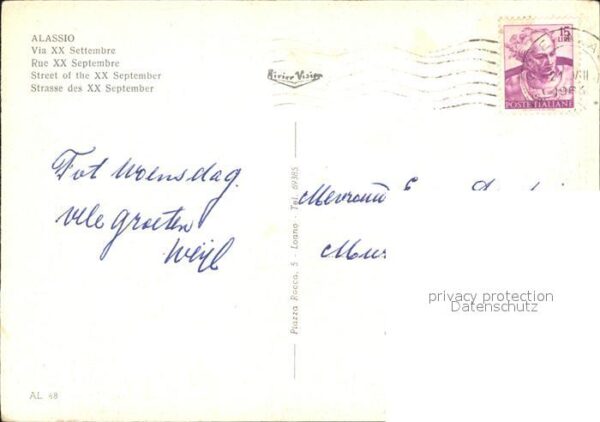 ALASSIO
Via XX Settembre
Rue XX Septembre
Street of the XX September
Strasse des XX September
15
LIRE
POSTE ITALIANE
Tot Woensdag.
vele groeten
Mevrouw
Piazza Rocca, 5 - Loano - Tel. 69385
privacy protection
Datenschutz
AL 48